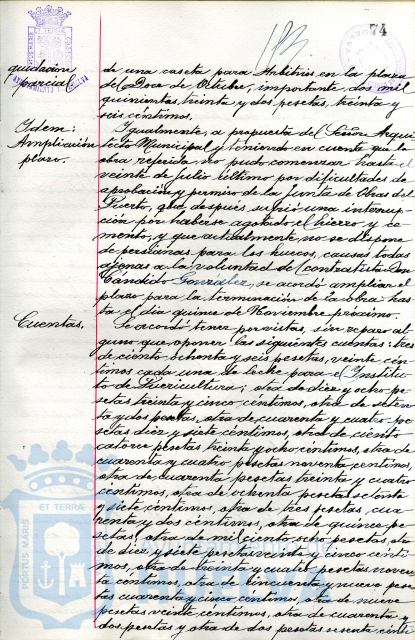 74
quidación
parcial.
de una caseta para Arbitrios en la plaza
del Doce de Octubre, importante dos mil
quinientas treinta y dos pesetas, treinta y
seis céntimos.
Idem:
Ampliación
plazo.
Igualmente, a propuesta del Señor Arqui-
tecto Municipal y teniendo en cuenta que la
obra referida no pudo comenzar hasta el
veinte de julio último por dificultades de
aprobación y permiso de la Junta de Obras del
Puerto, que después surgió una interrup-
ción por haberse agotado el hierro y ce-
mento, y que actualmente no se dispone
de persianas para los huecos, causas todas
ajenas a la voluntad del contratista Don
Cándido González, se acordó ampliar el
plazo para la terminación de la obra has-
ta el día quince de Noviembre próximo.
Cuentas.
Se acordó tener por vistas, sin reparo al-
guno que oponer las siguientes cuentas: tres
de ciento ochenta y seis pesetas, veinte cén-
timos cada una de leche para el Institu-
to de Puericultura; otra de diez y ocho pe-
setas treinta y cinco céntimos, otra de seten-
ta y dos pesetas, otra de cuarenta y cuatro pe-
setas diez y siete céntimos, otra de ciento
catorce pesetas treinta y ocho céntimos, otra de
cuarenta y cuatro pesetas noventa céntimos,
otra de cuarenta pesetas treinta y cuatro
céntimos, otra de ochenta pesetas sesenta
y siete céntimos, otra de tres pesetas, cua-
renta y dos céntimos, otra de quince pe-
setas, otra de mil ciento seis pesetas, otra
de diez y siete pesetas veinte y cinco cénti-
mos, otra de treinta y cuatro pesetas noven-
ta céntimos, otra de cincuenta y nueve pese-
tas cuarenta y cinco céntimos, otra de nueve
pesetas veinte céntimos, otra de cuarenta y
dos pesetas y otra de dos pesetas veinte cénti-
PORTUS MARIS
ET TERRÆ